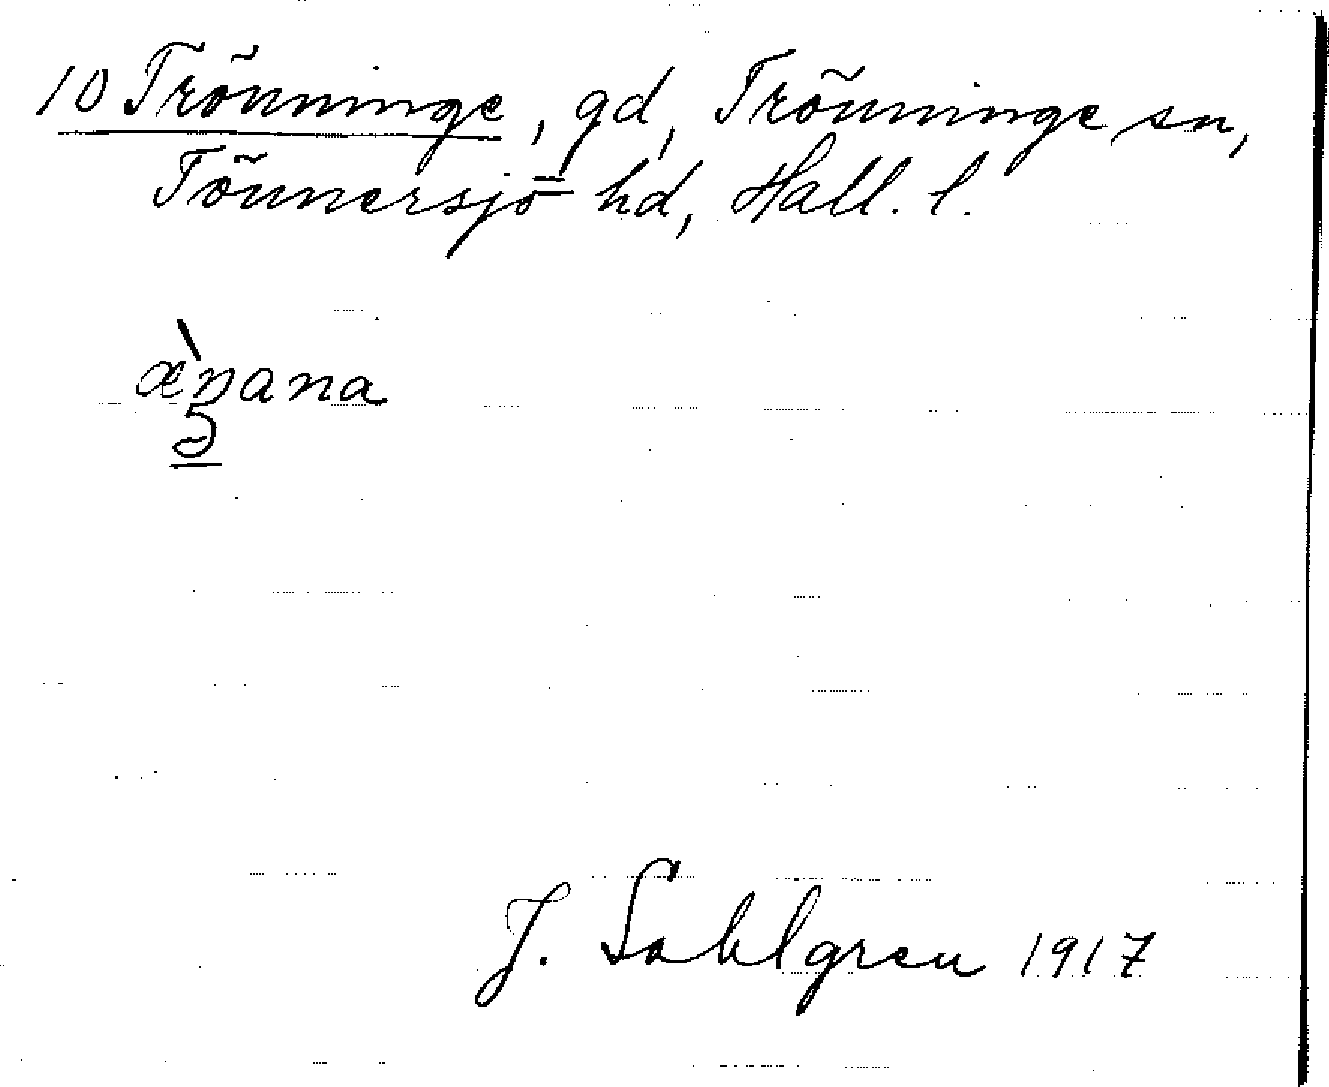 10 Trönninge, gd, Trönninge sn,
Tönnersjö hd, Hall. l.
æ̀nana
5
J. Sahlgren 1917